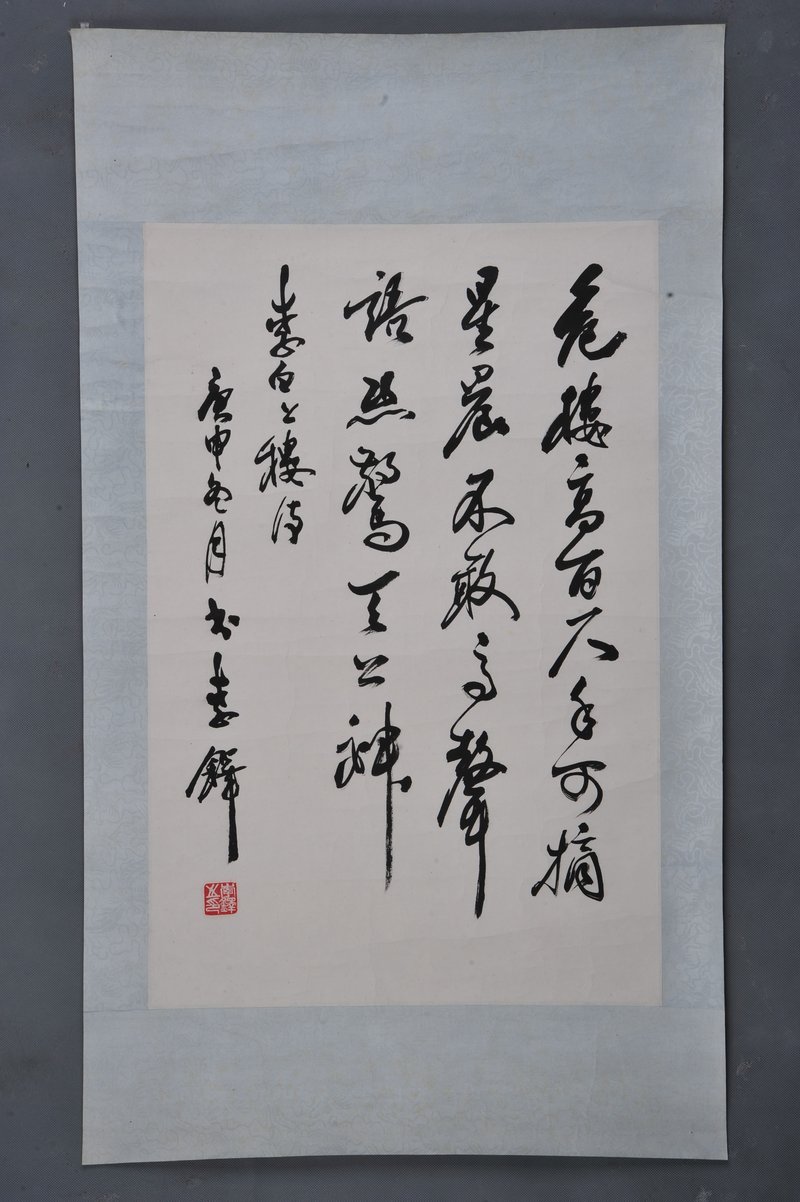 危樓高百尺手可摘
星辰不敢高聲
語恐驚天上神
李白上樓詩
庚申冬月書李鐸
李鐸之印